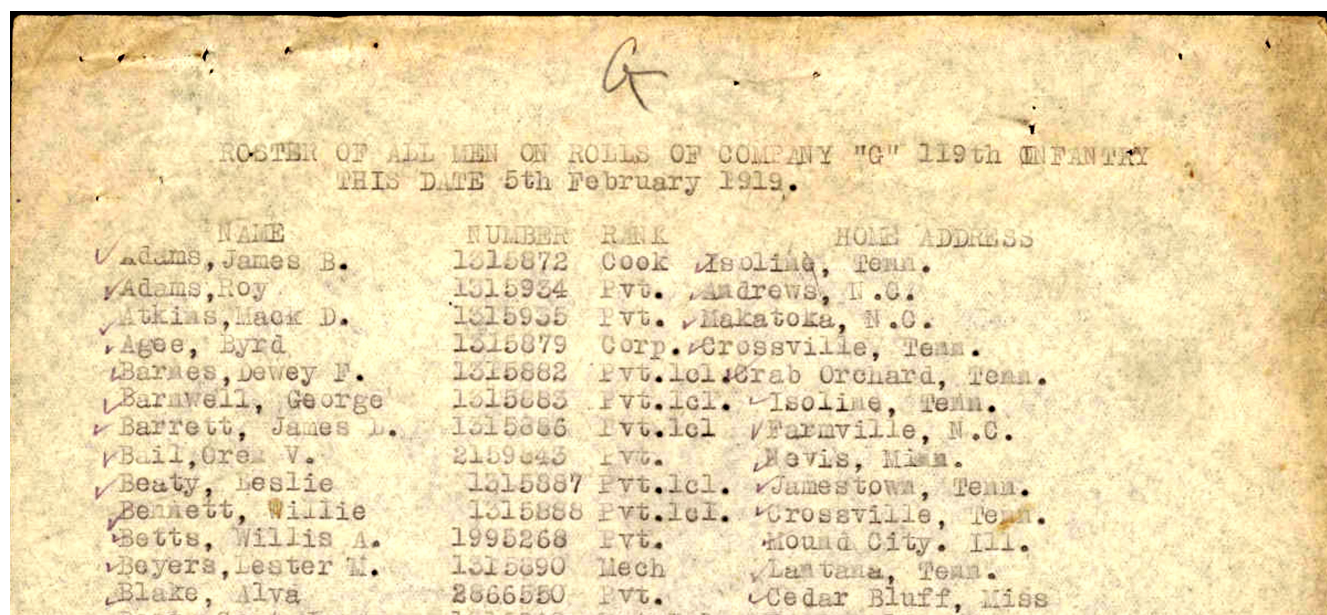 G
ROSTER OF ALL MEN ON ROLLS OF COMPANY "G" 119th INFANTRY
THIS DATE 5th February 1919.
NAME NUMBER RANK HOME ADDRESS
Adams,James B. 1315872 Cook Isoline, Tenn.
Adams,Roy 1315934 Pvt. Andrews, N.C.
Atkins,Mack D. 1315935 Pvt. Makatoka, N.C.
Agee, Byrd 1315879 Corp. Crossville, Tenn.
Barnes,Dewey F. 1315882 Pvt.1cl. Crab Orchard, Tenn.
Barnwell, George 1315883 Pvt.1cl. Isoline, Tenn.
Barrett, James L. 1315886 Pvt.1cl Farmville, N.C.
Bail,Oren V. Pvt. Nevis, Minn.
Beaty, Leslie 1315887 Pvt.1cl. Jamestown, Tenn.
Bennett, Willie 1315888 Pvt.1cl. Crossville, Tenn.
Betts, Willis A. 1995268 Pvt. Mound City. Ill.
Beyers,Lester M. 1315890 Mech Lantana, Tenn.
Blake, Alva Pvt. Cedar Bluff, Miss